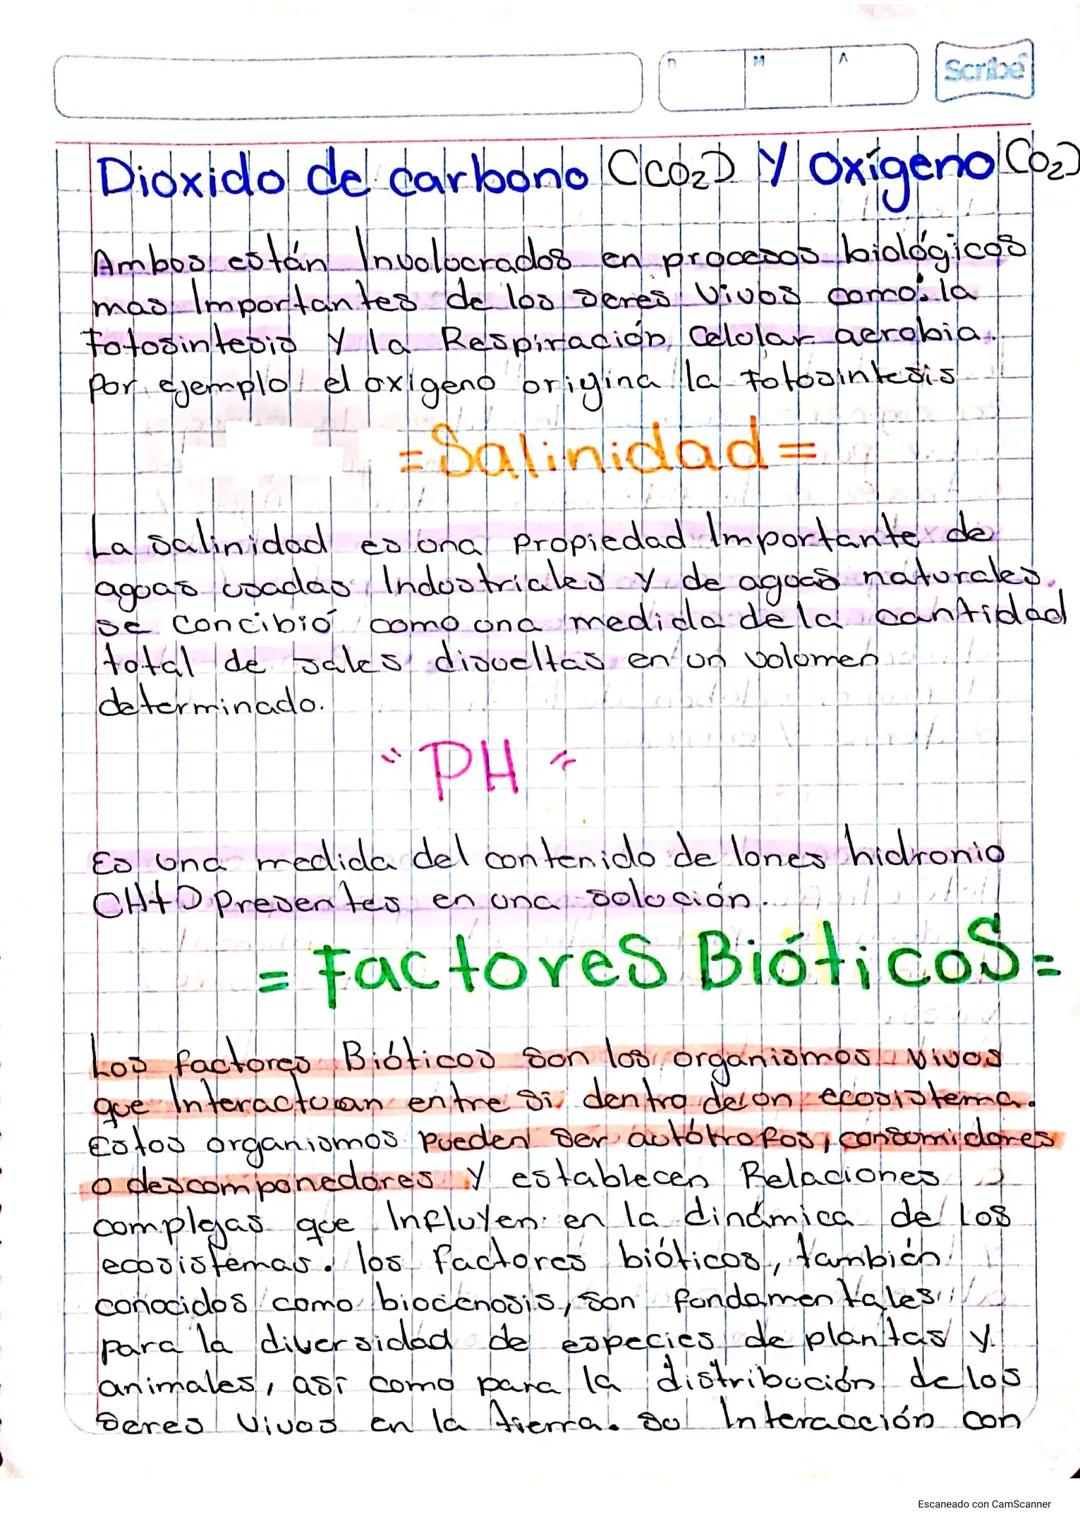 D M A Scribe
Dioxido de carbono (CO2) Y oxígeno (O2)
Ambos están Involocrados en procesos biológicos
mas Importantes de los seres vivos como: la
Fotosintesis Y la Respiración Celolar aerobia.
Por ejemplo el oxigeno origina la Fotosintesis
=Salinidad=
La salinidad es ona Propiedad Importante de
agoas usadas Indostriales Y de agoas natorales.
se concibió como ona medida de la cantidad
total de sales disoeltas en on volomen
determinado.
" PH "
Es una medida del contenido de Iones hidronio
(H+) Presentes en una solución.
= Factores Bióticos=
Los factores Bióticos son los organismos vivos
que Interactuan entre si dentro de on ecosistema.
Estos organismos pueden ser autótrofos, consomidores
o descomponedores Y establecen Relaciones
complejas que Influyen en la dinámica de los
ecosistemas. los factores bióticos, también
conocidos como biocenosis, son fondamentales
para la diversidad de especies de plantas y
animales, así como para la distriboción de los
seres vivos en la tierra. So Interacción con
Escaneado con CamScanner